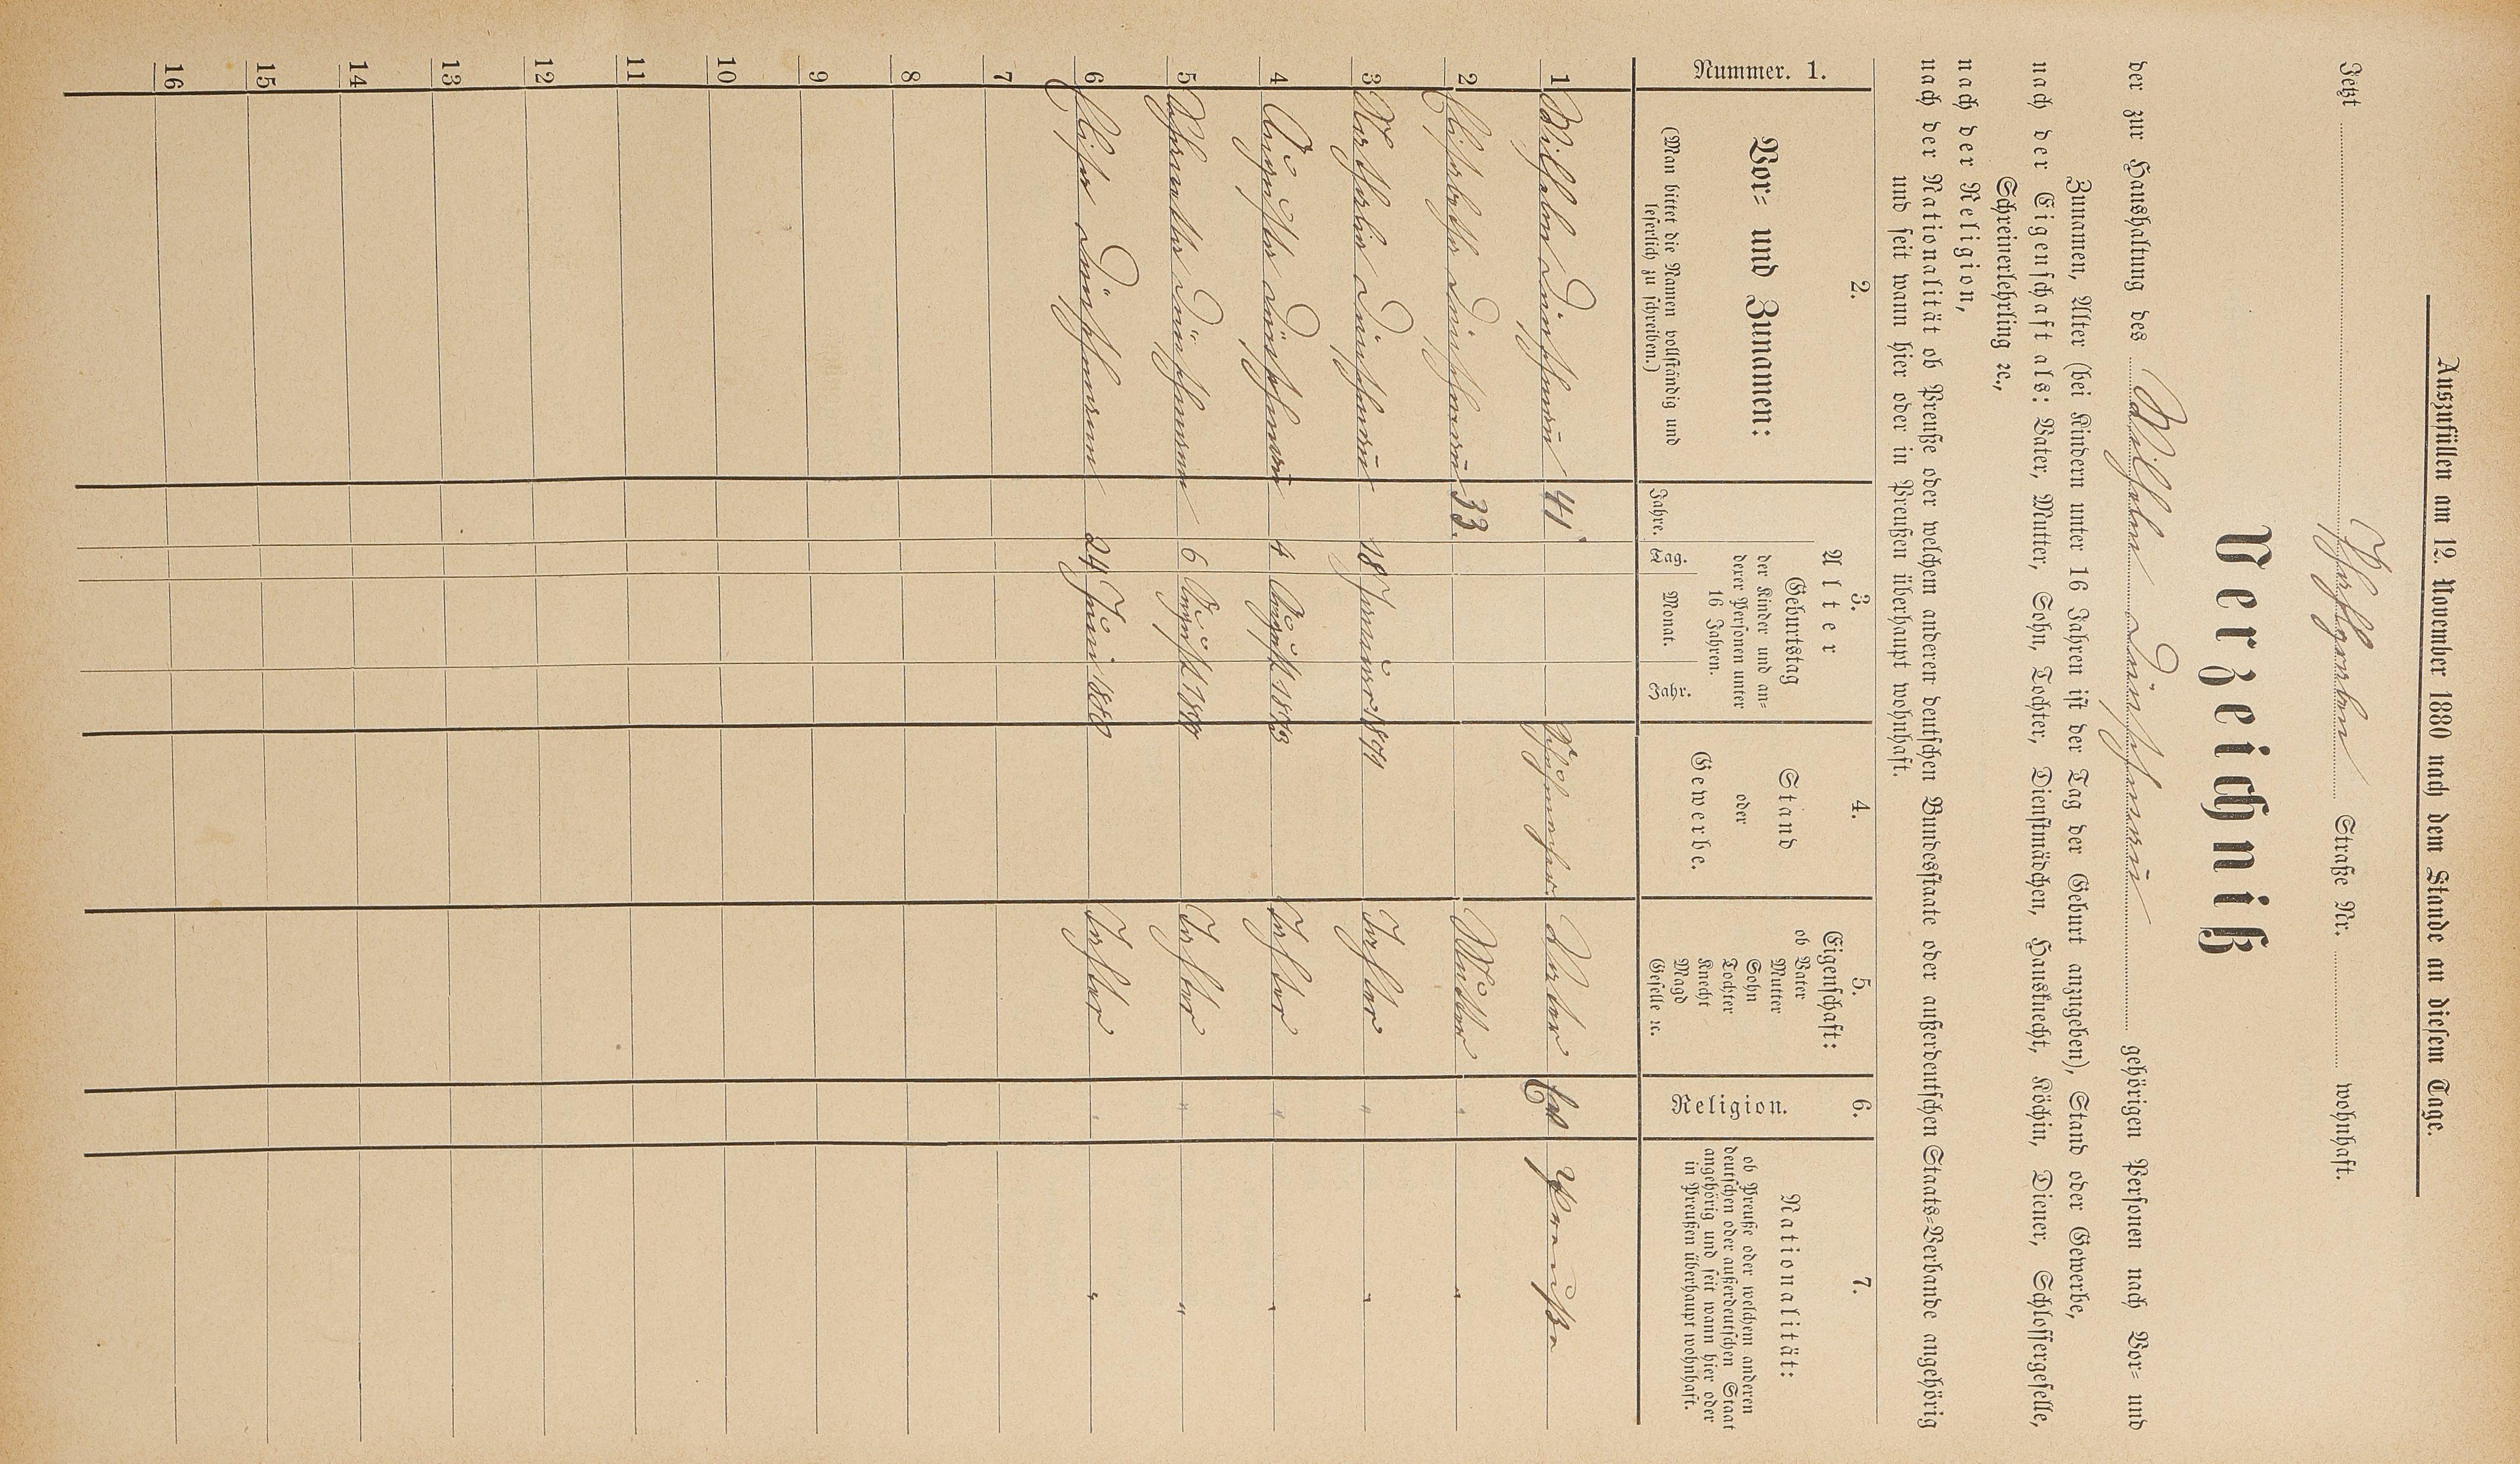 Auszufüllen am 12. November 1880 nach dem Stande an diesem Tage.
Jetzt Straße Nr. wohnhaft.
Verzeichniß
der zur Haushaltung des Wilhelm gehörigen Personen nach Vor- und
Zunamen, Alter (bei Kindern unter 16 Jahren ist der Tag der Geburt anzugeben), Stand oder Gewerbe,
nach der Eigenschaft als: Vater, Mutter, Sohn, Tochter, Dienstmädchen, Hausknecht, Köchin, Diener, Schlossergeselle,
Schreinerlehrling ꝛc.,
nach der Religion,
nach der Nationalität ob Preuße oder welchem anderen deutschen Bundesstaate oder außerdeutschen Staats-Verbande angehörig
und seit wann hier oder in Preußen überhaupt wohnhaft.
1.
Nummer.
2.
Vor- und Zunamen:
(Man bittet die Namen vollständig und
leserlich zu schreiben.)
3.
Alter
Geburtstag
der Kinder und an-
derer Personen unter
16 Jahren.
Jahre. Tag. Monat. Jahr.
4.
Stand
oder
Gewerbe.
5.
Eigenschaft:
ob Vater
Mutter
Sohn
Tochter
Knecht
Magd
Geselle ꝛc.
6.
Religion.
7.
Nationalität:
ob Preuße oder welchem anderen
deutschen oder außerdeutschen Staat
angehörig und seit wann hier oder
in Preußen überhaupt wohnhaft.
1 Wilhelm 41 Vater Preuße
2 Elisabetha 33. Mutter "
3 18 Januar Tochter " "
4 4 August 1873 Tochter " "
5 6 August Tochter " "
6 24 Juni 1880 Tochter " "
7
8
9
10
11
12
13
14
15
16